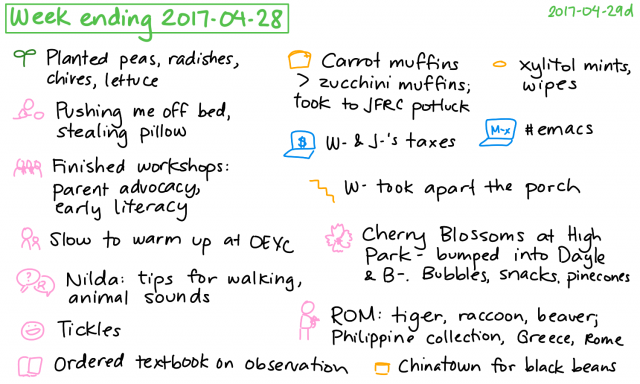 Week ending 2017-04-28
2017-04-29d
Planted peas, radishes,
chives, lettuce
Pushing me off bed,
stealing pillow
Finished workshops:
parent advocacy,
early literacy
Slow to warm up at OEYC
Nilda: tips for walking,
animal sounds
Tickles
Ordered textbook on observation
Carrot muffins
> zucchini muffins;
took to JFRC potluck
$ W- & J-'s taxes
W- took apart the porch
Cherry Blossoms at High
Park - bumped into Dayle
& B-. Bubbles, snacks, pinecones
ROM: tiger, raccoon, beaver;
Philippine collection, Greece, Rome
Chinatown for black beans
xylitol mints,
wipes
M-x #emacs